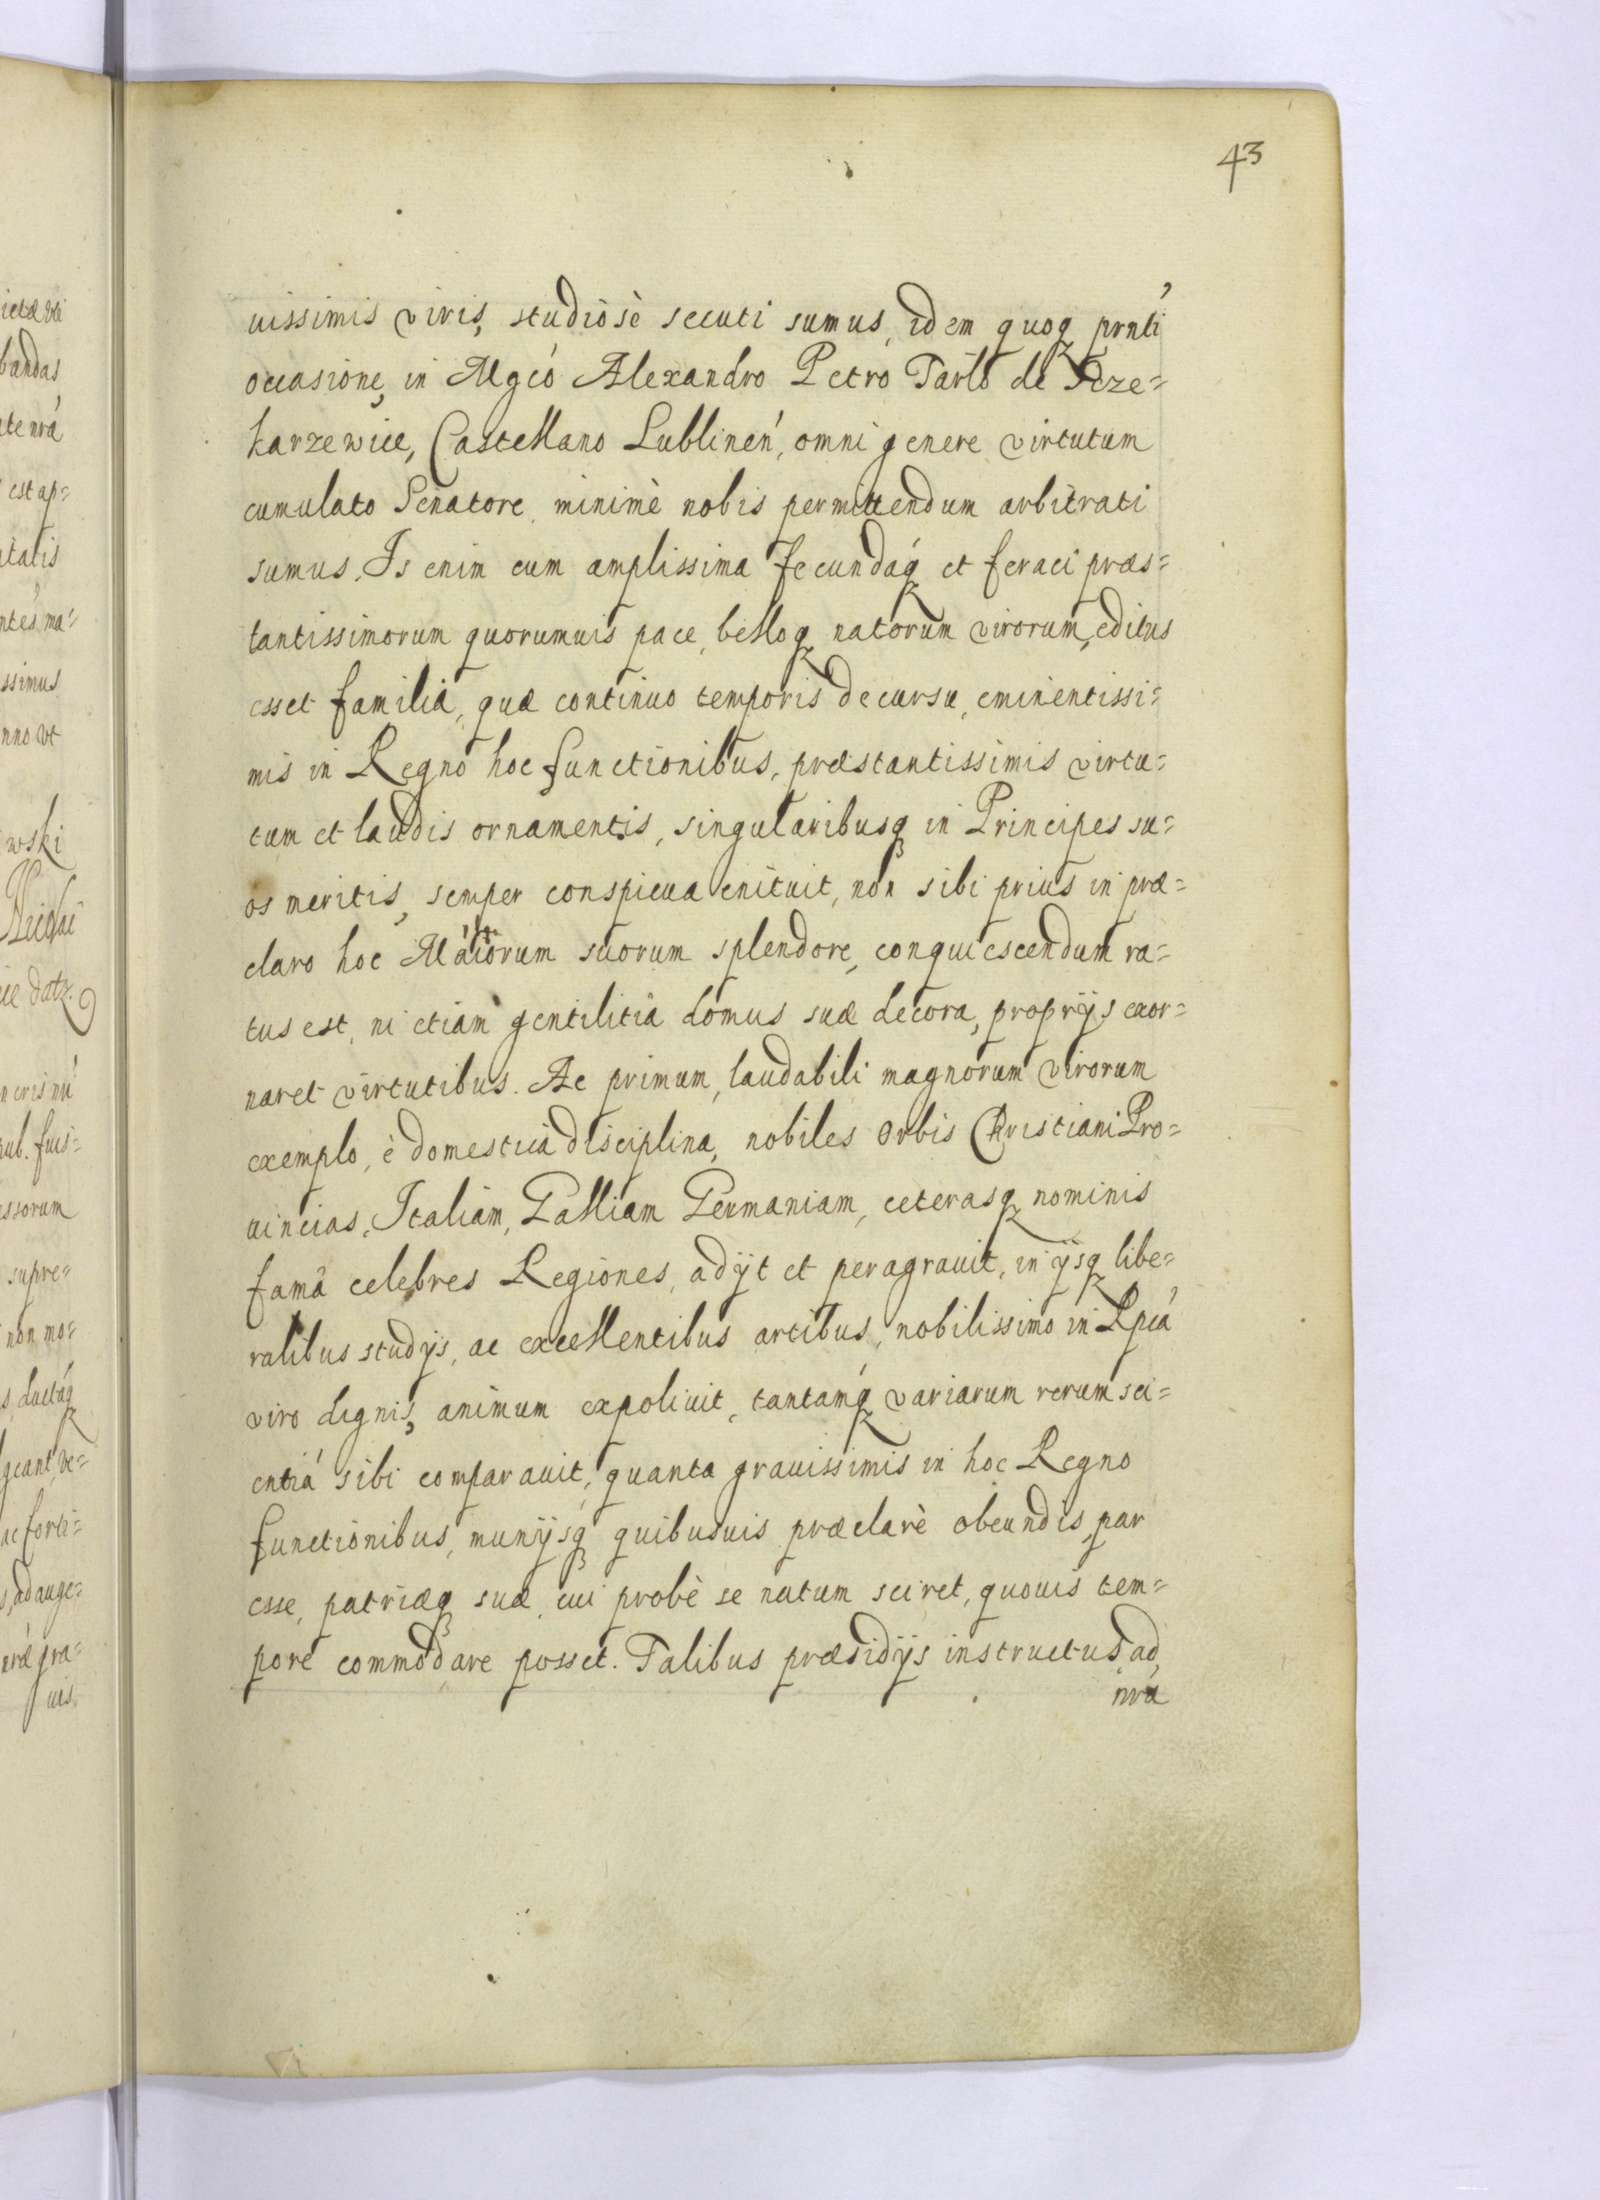 43
uissimis viris, studiosè secuti sumus, idem quoq prnti
occasione, in Mgco Alexandro Petro Tarlo de Scze=
karzewice, Castellano Lublinen, omni genere virtutum
cumulato Senatore, minimè nobis permittendum arbitrati
sumus. Is enim cum amplissima fecundaq et feraci præs=
tantissimorum quorumuis pace, belloq natorum virorum, editus
esset familia, quæ continuo temporis decursu, eminentissi=
mis in Regno hoc functionibus, præstantissimis virtu=
tum et laudis ornamentis, singularibusq in Principes su=
os meritis, semper conspicua enituit, non sibi prius in præ=
claro hoc Maiorum suorum splendore, conquiescendum ra=
tus est, ni etiam gentilitia domus suæ decora, proprijs exor=
naret virtutibus. Ac primum, laudabili magnorum virorum
exemplo, è domestica disciplina, nobiles Orbis Christiani Pro=
uincias, Italiam, Galliam Germaniam, ceterasq nominis
famâ celebres Regiones, adijt et peragrauit, in ijsq libe=
ralibus studijs, ac excellentibus artibus, nobilissimo in Rpca
viro dignis, animum expoliuit, tantamq variarum rerum sci=
entiá sibi comparauit, quanta grauissimis in hoc Regno
functionibus, munijsq quibusuis præclarè obeundis, par
esse, patriæq suæ, cui probè se natum sciret, quouis tem=
pore commodare posset. Talibus præsidijs instructus, ad
nrá